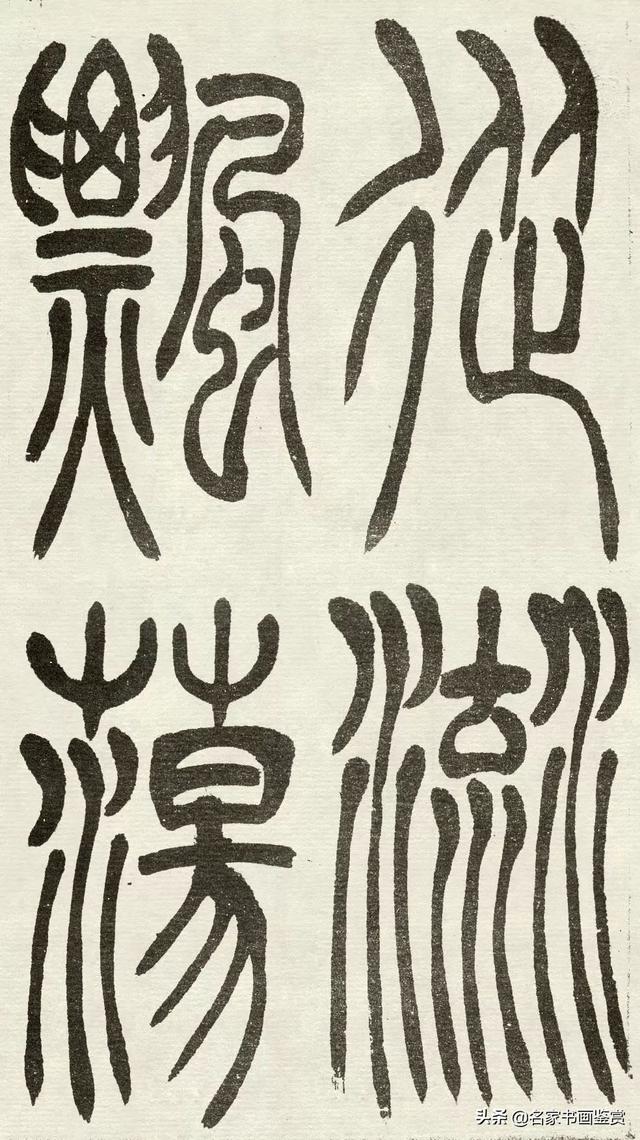 從流
飄蕩
头条 @名家书画鉴赏